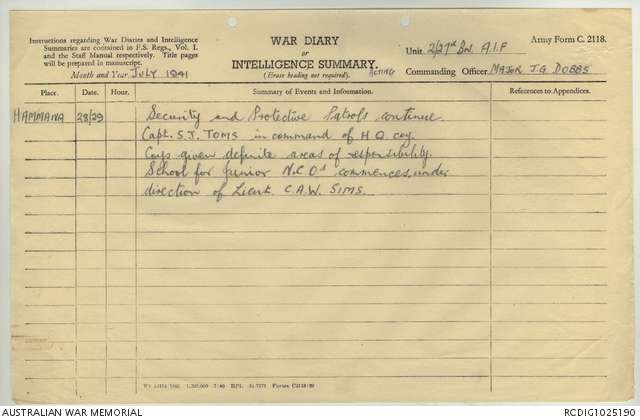 Instructions regarding War Diaries and Intelligence
Summaries are contained in F.S. Regs., Vol. I.
and the Staff Manual respectively. Title pages
will be prepared in manuscript.
Month and Year JULY 1941
WAR DIARY
or
INTELLIGENCE SUMMARY.
(Erase heading not required).
Army Form C. 2118.
Unit 2/27th Bn. A.I.F
ACTING Commanding Officer MAJOR J.G. DOBBS
Place. Date. Hour. Summary of Events and Information. References to Appendices.
HAMMANA 28/29 Security and Protective Patrols continue.
Capt. S.J. TOMS in command of H Q coy.
Coys given definite areas of responsibility.
School for junior N.C.Os commences, under
direction of Lieut. C.A.W. SIMS.
1,200,000 7/40 Forms C2118/20
AUSTRALIAN WAR MEMORIAL
RCDIG1025190